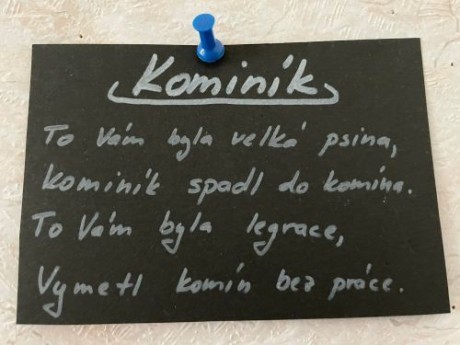 Kominík
To Vám byla velká psina,
kominík spadl do komína.
To Vám byla legrace,
Vymetl komín bez práce.